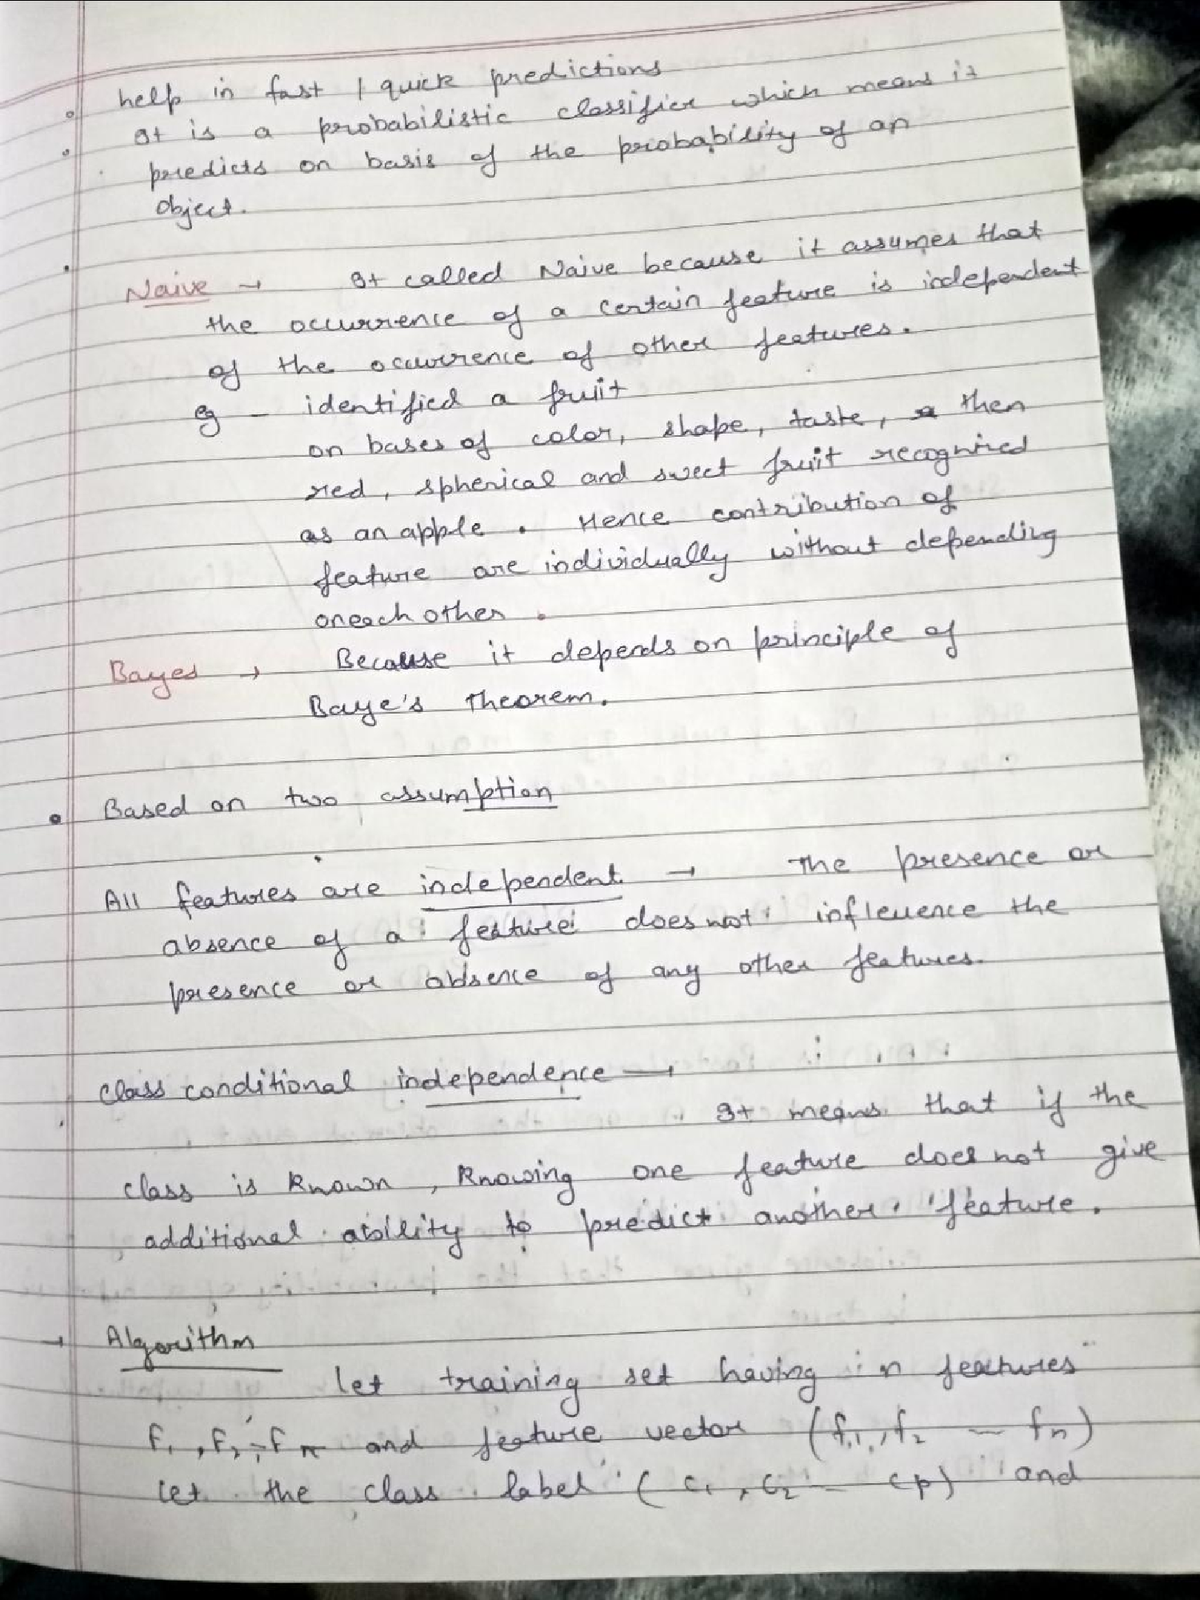 help in fast / quick predictions
It is a probabilistic classifier which means it
predicts on basis of the probability of an
object.
Naive → It called Naive because it assumes that
the occurrence of a certain feature is independent
of the occurrence of other features.
eg - identified a fruit
on bases of color, shape, taste, then
red, spherical and sweet fruit recognized
as an apple. Hence contribution of
feature are individually without depending
oneach other.
Bayes → Because it depends on principle of
Baye's Theorem.
Based on two assumption
All features are independent → The presence or
absence of a feature does not influence the
presence or absence of any other features.
class conditional independence →
It means that if the
class is known, knowing one feature does not give
additional ability to predict another feature.
→ Algorithm
let training set having n features
F1, F2, - Fn and feature vector (f1, f2 - fn)
let the class label (C1, C2 - Cp) and